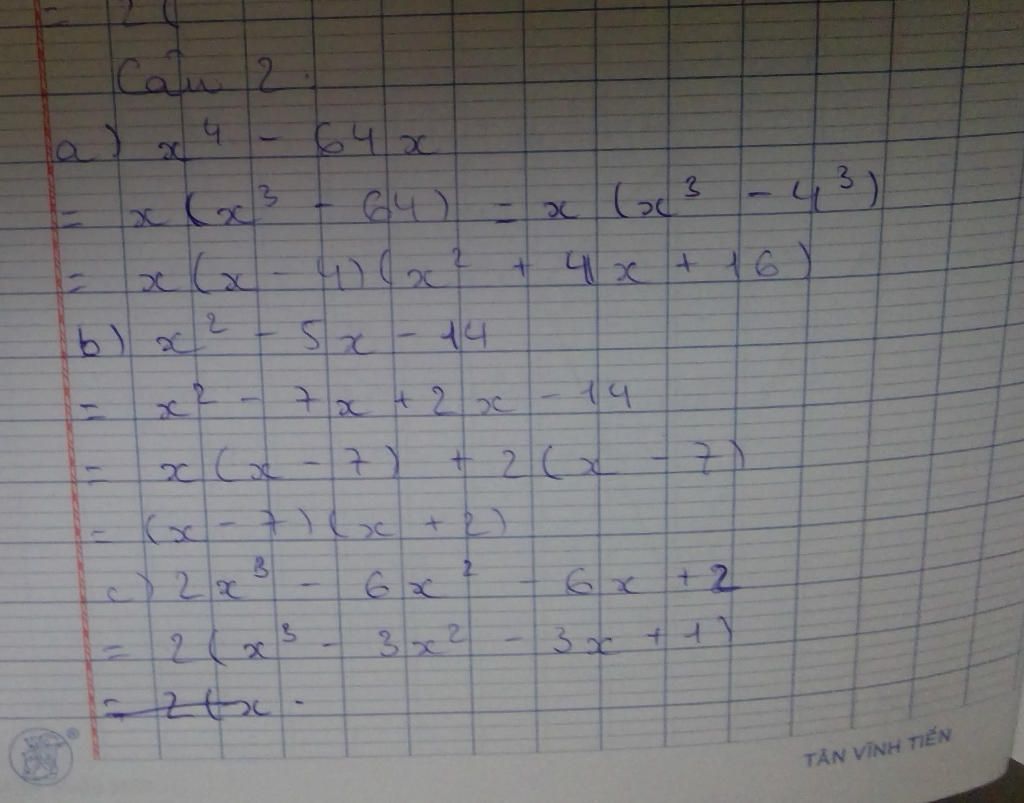 = 2(
Câu 2.
a) x⁴ - 64x
= x(x³ - 64) = x(x³ - 4³)
= x(x - 4)(x² + 4x + 16)
b) x² - 5x - 14
= x² - 7x + 2x - 14
= x(x - 7) + 2(x - 7)
= (x - 7)(x + 2)
c) 2x³ - 6x² - 6x + 2
= 2(x³ - 3x² - 3x + 1)
= 2(x -
TÂN VĨNH TIẾN